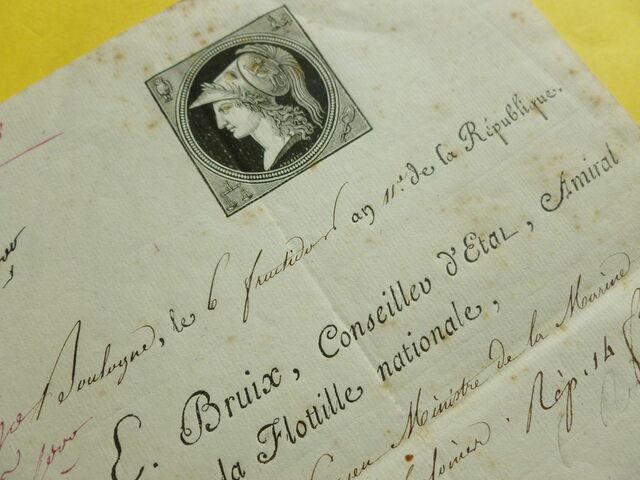 Boulogne, le 6 fructidor an 11.e de la République.
E. Bruix, Conseiller d'Etat, Amiral
la Flottille nationale,
Ministre de la Marine
Rép. 14